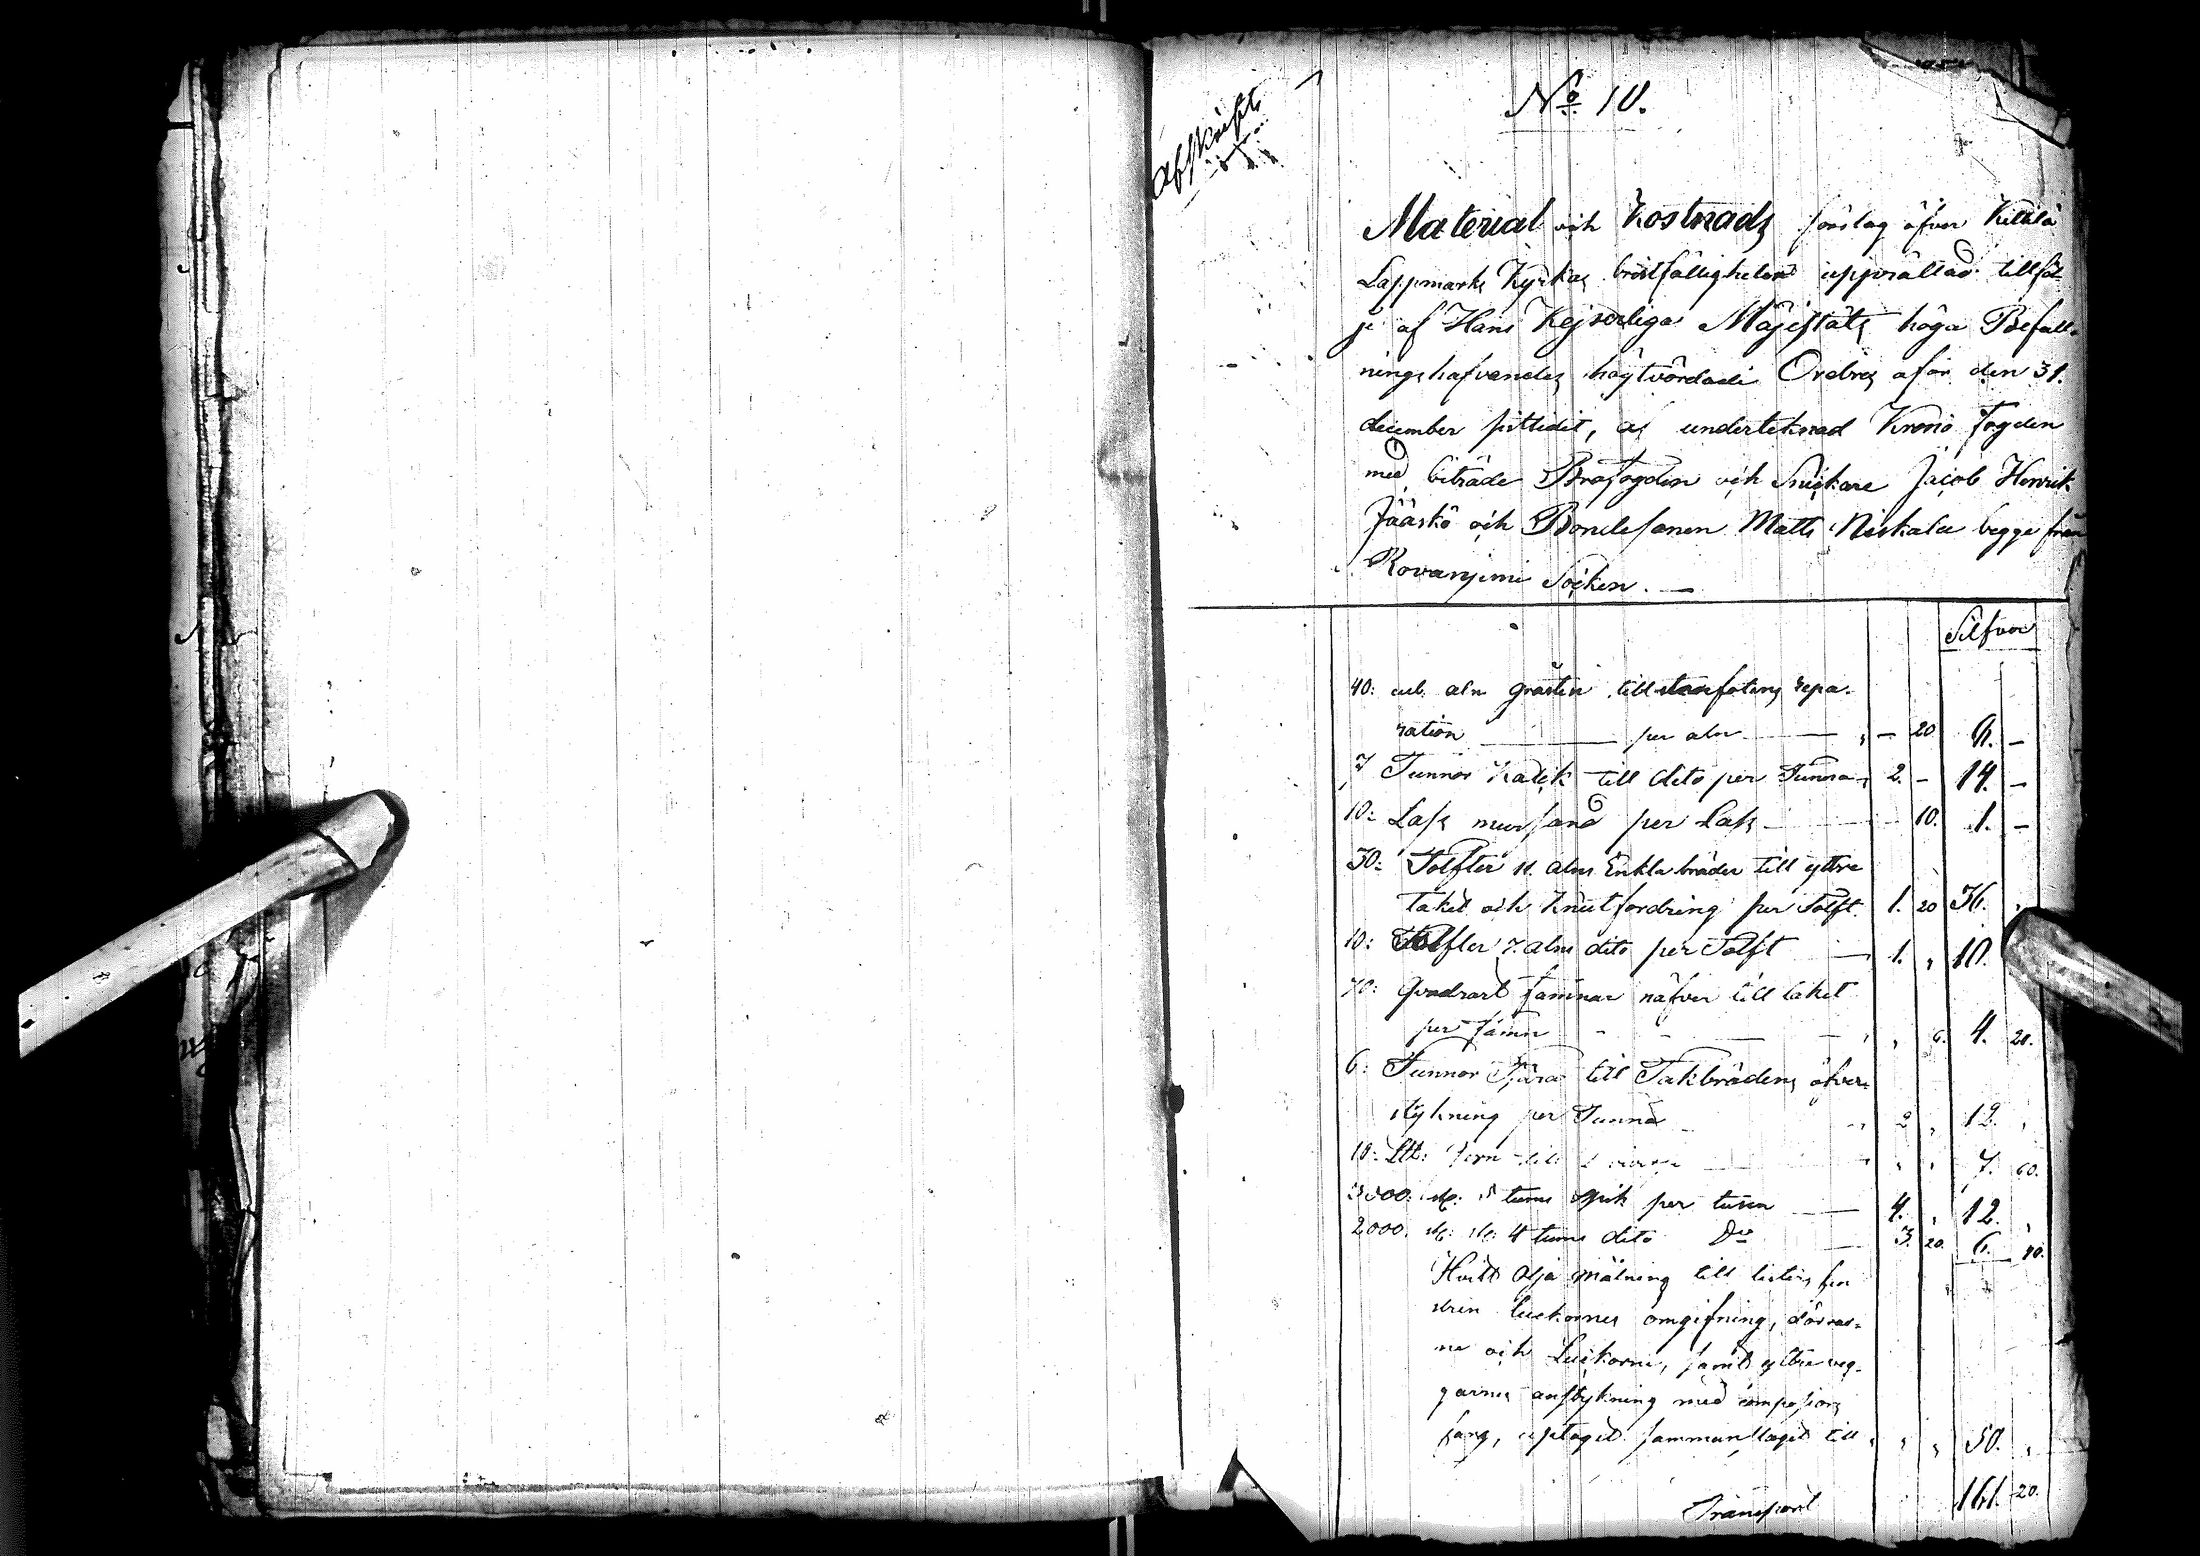 Afskrift
No 10.
Material och Kostnads förslag öfver Kittilä
Lappmarks Kyrkas bristfälligheter upprättad tillföl
je af Hans Kejserliga Majestäts höga Befall-
ningshafvandes högtvördade Ordres afför den 31.
december sistledit, af undertecknad Krono fogden
med biträde Brofogden och Snickare Jacob Henrik
Jääskö och Bondesonen Matts Niskala begge från
Rovanjemi Socken. —
Silfver
40: cub. aln gråsten till stenfotens repa-
ration — per aln — „ — 20. 8. —
7 Tunnor Kalck till dito per Tunna 2. — 14. —
10: Lass mursand per Lass — 10. 1. —
30: Tolfter 11. alns Enkla bräder till yttre
taket och knutfordring per Tolft. 1. 20 36. „
10: Tolfter 7. alns dito per Tolft — 1. „ 10.
70: Qvadrat famnar näfver till taket
per famn — „ 6. 4. 20.
6: Tunnor Tjära till Takbrädens öfver-
stykning per Tunna „ 2 „ 12. „
10: Ltt: Jern till „ „ 7. 60.
3000. st: 5 tums spik per tusen — 4. „ 12. „
2000. st: st: 4 tums dito Do — 3. 20. 6. 40.
Hvitt Olja målning till listers fen
stren luckornes omgifning, dörrar-
ne och Luckorne, samt yttre väg-
garnes anstrykning med compositions
färg, uptaget sammanslaget till „ „ „ 50. „
Transport 161. 20.